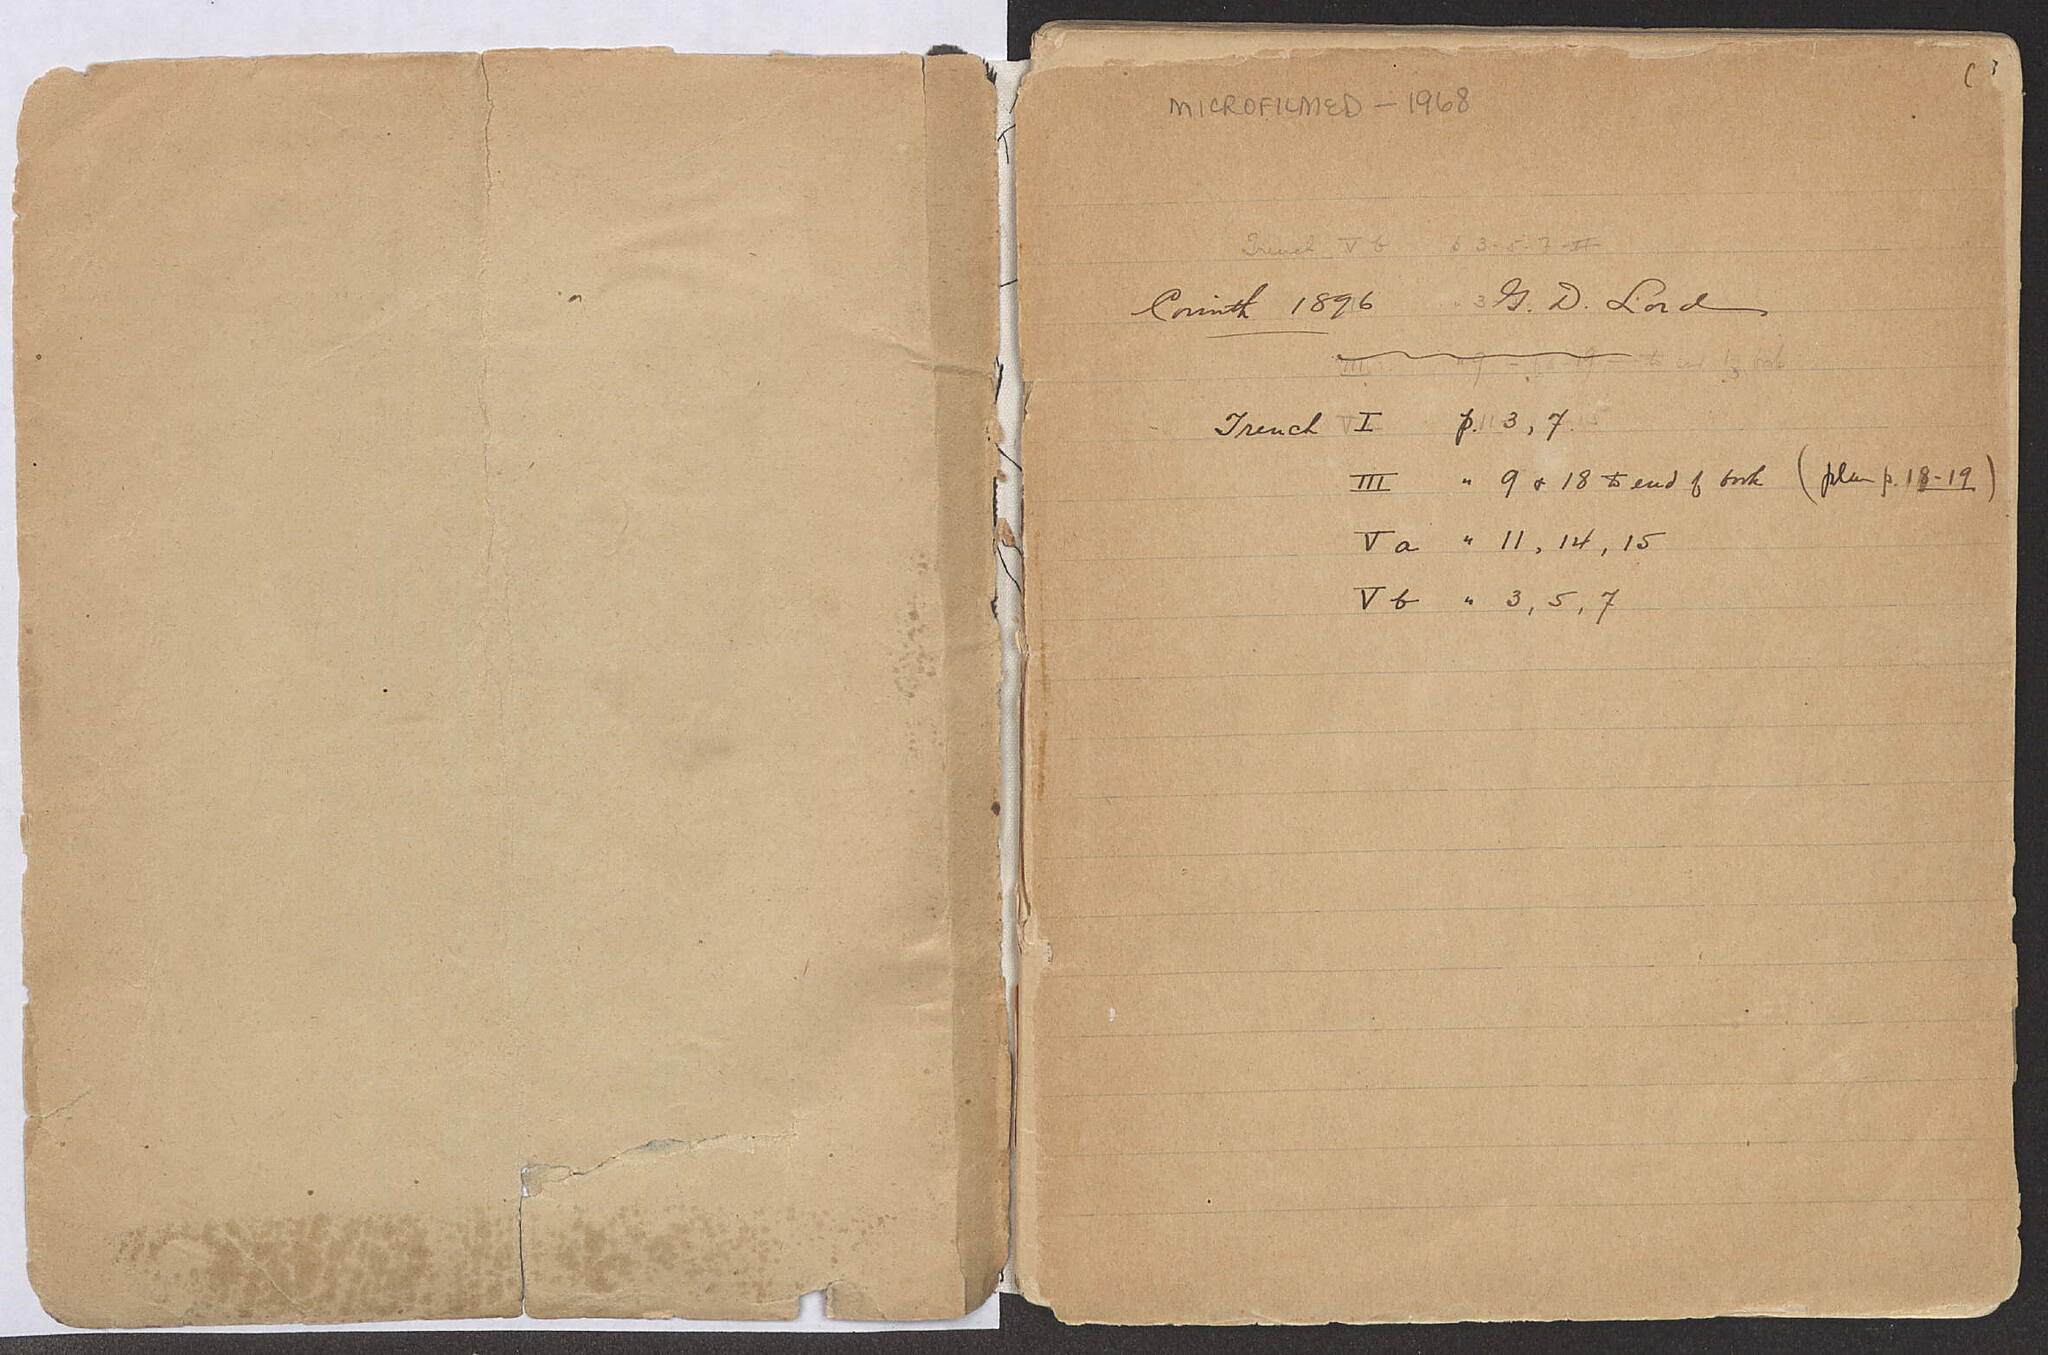 MICROFILMED – 1968
Trench V b 3-5-7
Corinth 1896 G. D. Lord
Trench I p. 3, 7
III " 9 & 18 to end of book (plan p. 18-19)
V a " 11, 14, 15
V b " 3, 5, 7